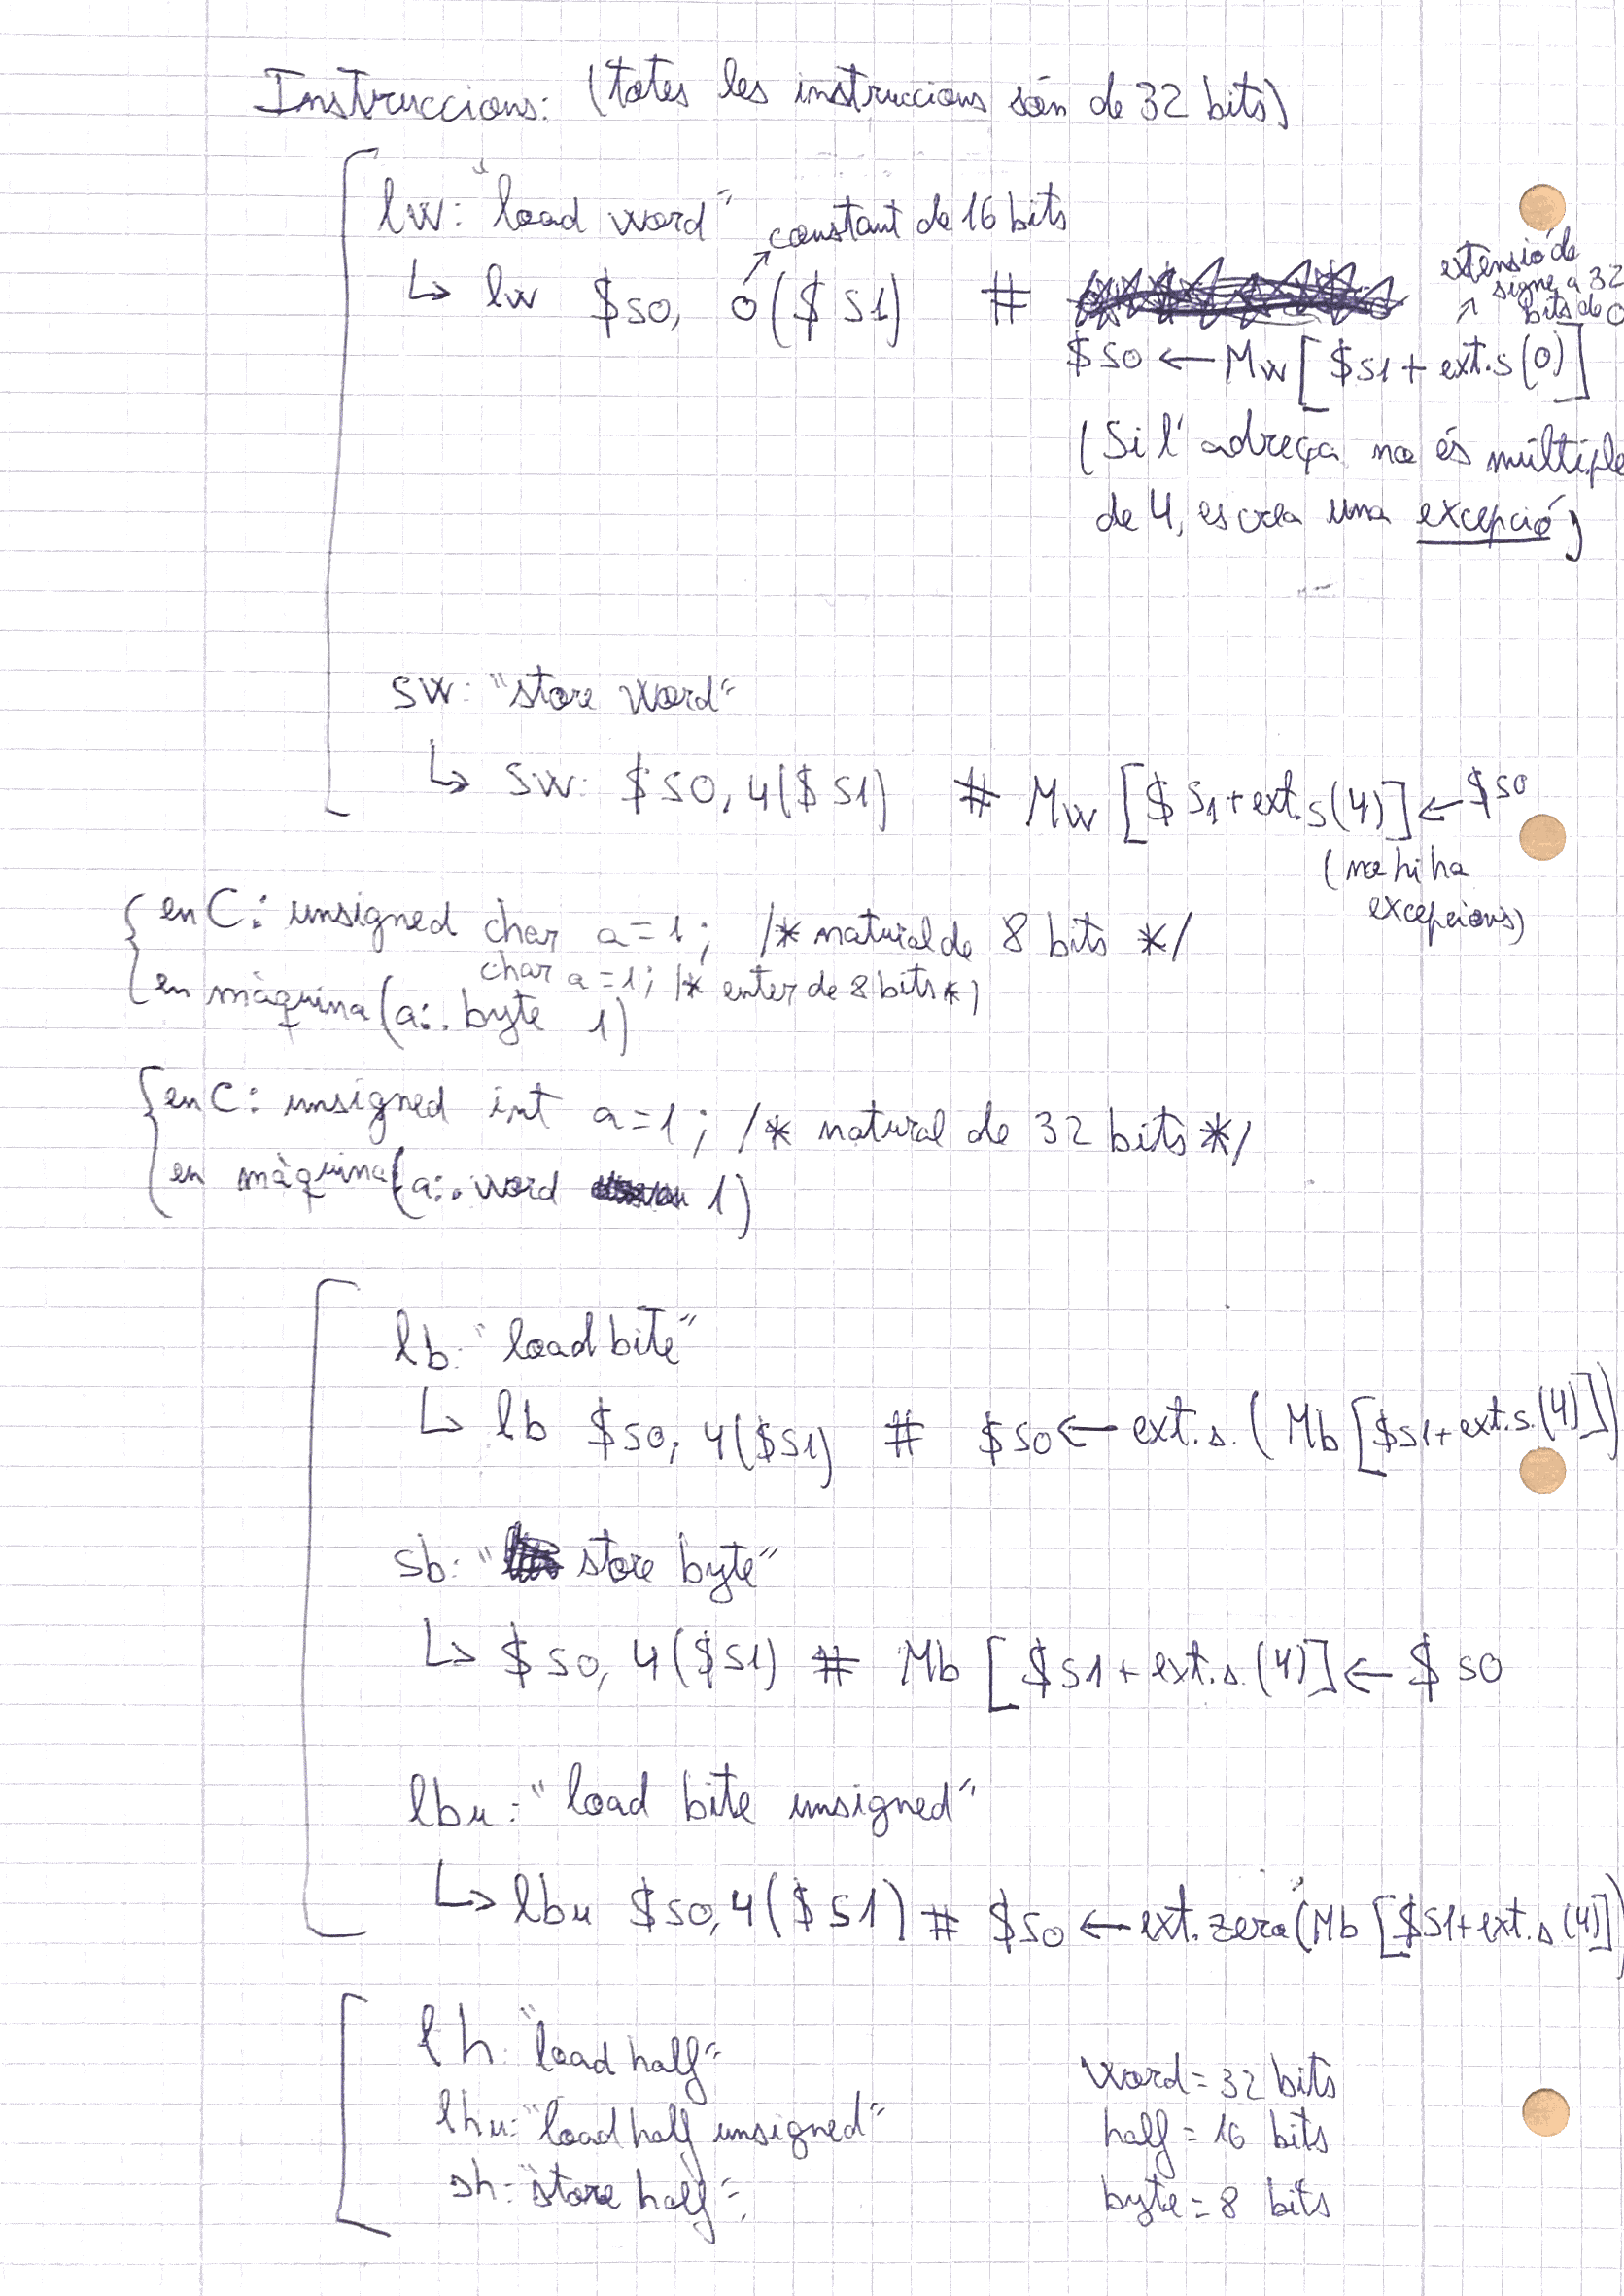 Instruccions: (totes les instruccions són de 32 bits)
lw: "load word"
constant de 16 bits
↳ lw $s0, 0($s1) #
extensió de
signe a 32
bits de 0
$s0 ← Mw[$s1+ext.s(0)]
(Si l'adreça no és múltiple
de 4, es crea una excepció)
sw: "store word"
↳ sw: $s0, 4($s1) # Mw[$s1+ext.s(4)] ← $s0
(no hi ha
excepcions)
en C: unsigned char a=1; /* natural de 8 bits */
char a=1; /* enter de 8 bits */
en màquina (a: .byte 1)
en C: unsigned int a=1; /* natural de 32 bits */
en màquina (a: .word 1)
lb: "load bite"
↳ lb $s0, 4($s1) # $s0 ← ext.s.(Mb[$s1+ext.s.(4)])
sb: "store byte"
↳ $s0, 4($s1) # Mb[$s1+ext.s.(4)] ← $s0
lbu: "load bite unsigned"
↳ lbu $s0, 4($s1) # $s0 ← ext.zero(Mb[$s1+ext.s(4)])
lh: "load half"
lhu: "load half unsigned"
sh: "store half"
word = 32 bits
half = 16 bits
byte = 8 bits